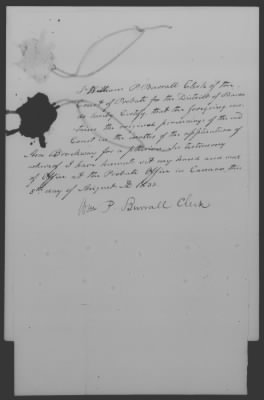 I William P. Burrall Clerk of the
Court of Probate for the District of
do hereby Certify, that the foregoing
the original proceedings of the said
Court in the matter of the application of
Asa Brockway for a pension In testimony
whereof I have hereunto set my hand and seal
of Office at the Probate Office in Canaan this
8th day of August AD 1832.
Wm P. Burrall Clerk